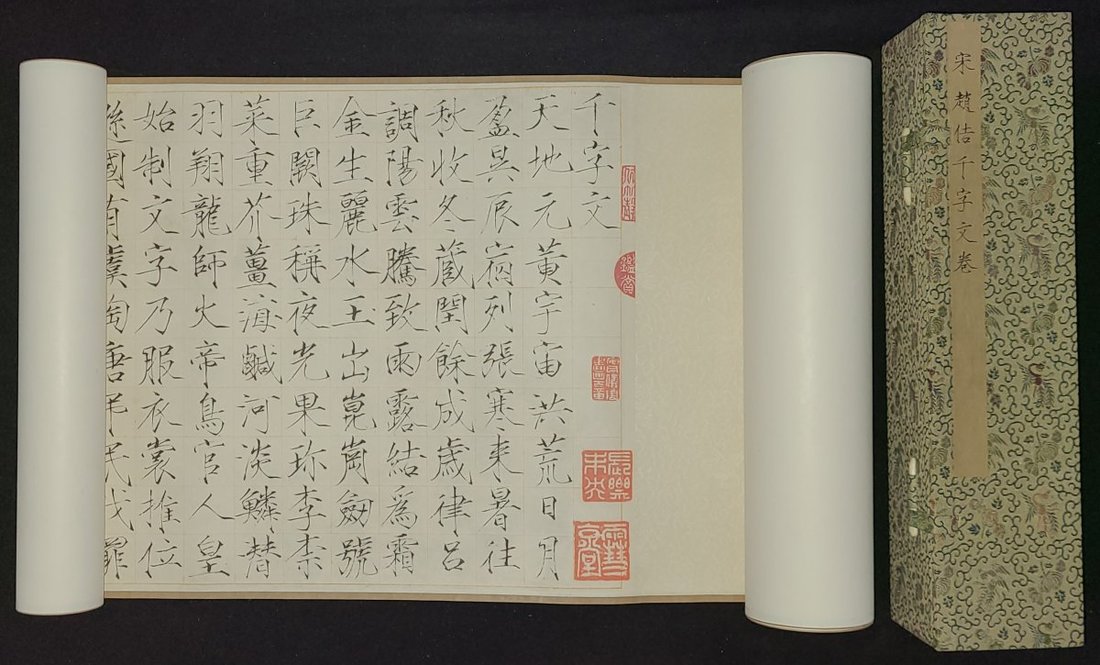 千字文
天地元黃宇宙洪荒日月
盈昃辰宿列張寒来暑往
秋收冬蔵閏餘成歲律吕
調陽雲騰致雨露結爲霜
金生麗水玉出崑崗劒號
巨闕珠稱夜光果珎李柰
菜重芥薑海鹹河淡鱗潜
羽翔龍師火帝鳥官人皇
始制文字乃服衣裳推位
國有虞陶唐民伐罪
鑑賞
宋趙佶千字文卷